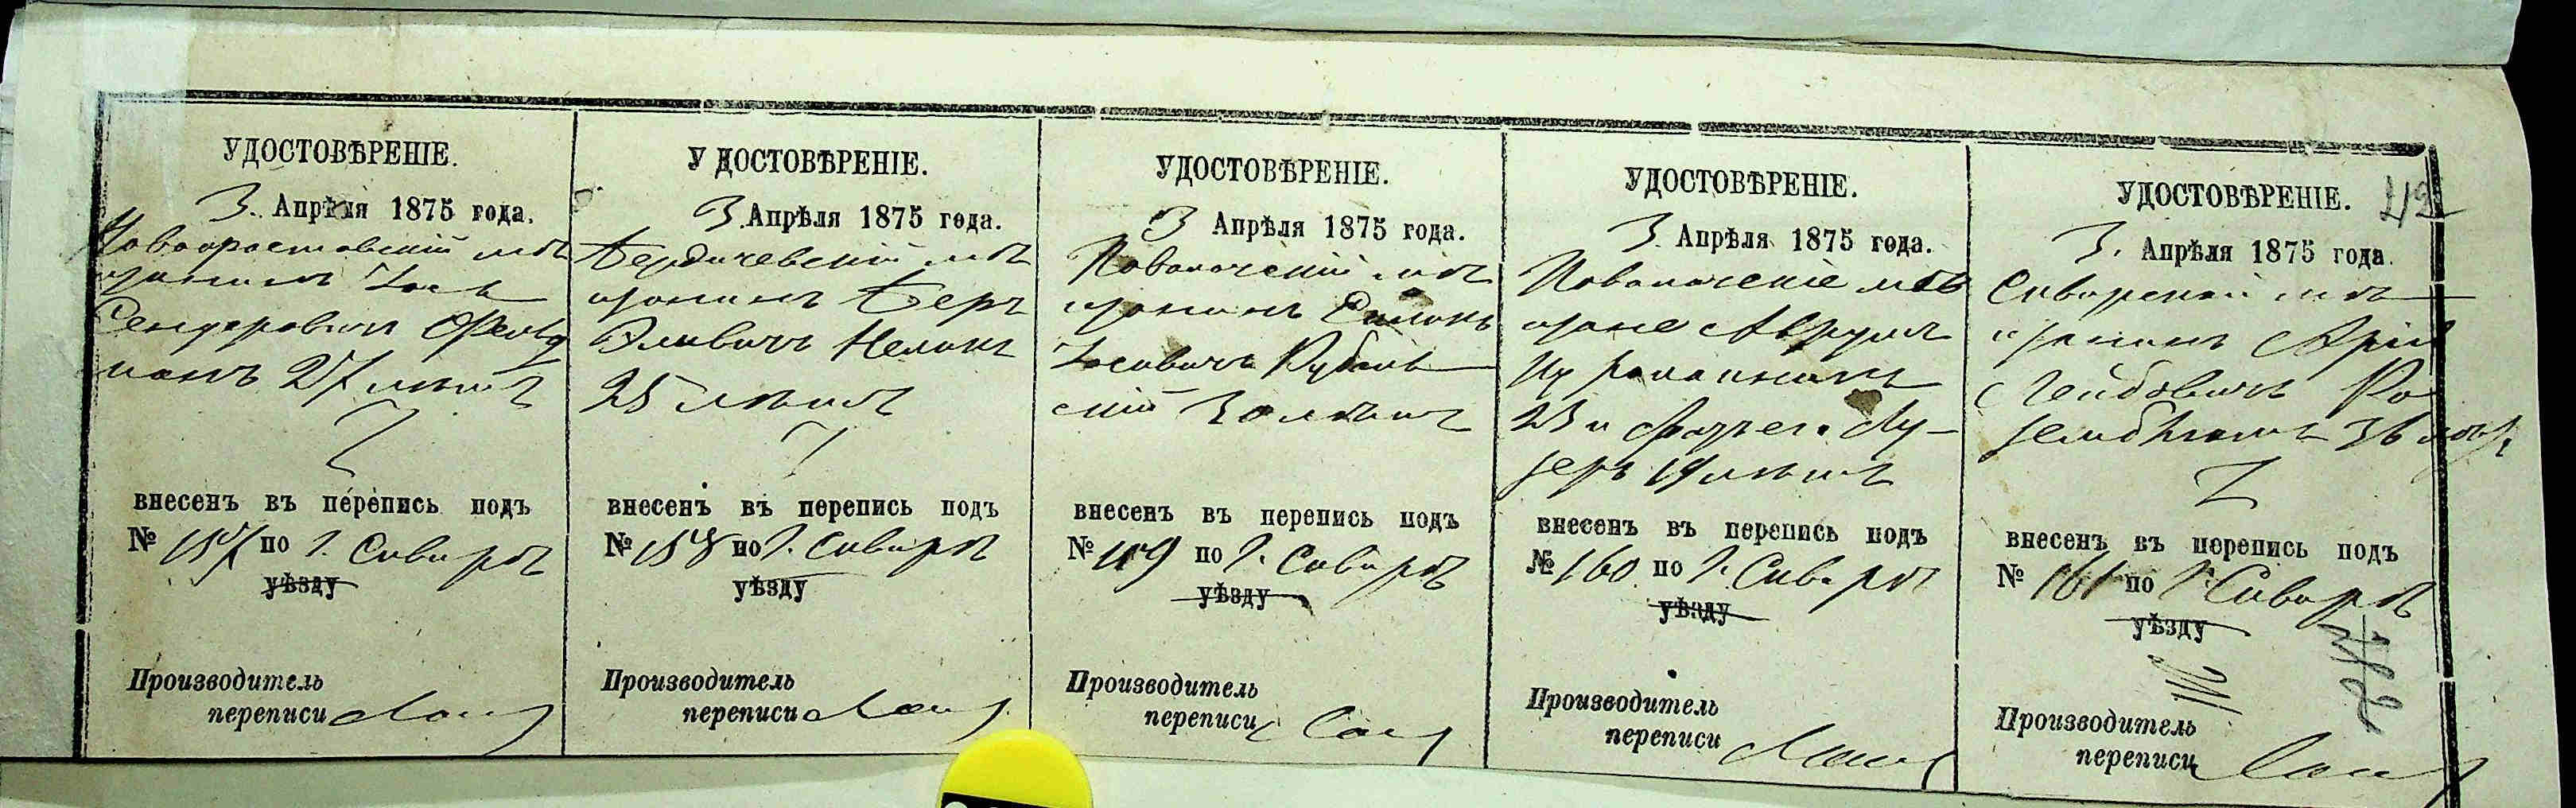 УДОСТОВѢРЕНІЕ.
3. Апрѣля 1875 года.
мѣ
щанинъ Іось
Сендеровичъ Фельд
манъ 27 лѣтъ
внесенъ въ перепись подъ
№ 157 по г. Сквирѣ
уѣзду
Производитель
переписи
У ДОСТОВѢРЕНІЕ.
3. Апрѣля 1875 года.
Бердичевскій мѣ
щанинъ Беръ
25 лѣтъ
внесенъ въ перепись подъ
№ 158 по г. Сквирѣ
уѣзду
Производитель
переписи
УДОСТОВѢРЕНІЕ.
3 Апрѣля 1875 года.
Паволочскій мѣ
щанинъ
Іосивичъ Рубань
скій 30 лѣтъ
внесенъ въ перепись подъ
№ 159 по г. Сквирѣ
уѣзду
Производитель
переписи
УДОСТОВѢРЕНІЕ.
3. Апрѣля 1875 года.
Паволочскіе мѣ
щане Аврумъ
23 и Лу
зеръ 19 лѣтъ
внесенъ въ перепись подъ
№ 160 по г. Сквирѣ
уѣзду
Производитель
переписи
42
УДОСТОВѢРЕНІЕ.
3. Апрѣля 1875 года.
Сквирскій мѣ
щанинъ
Лейбовичъ Ро
36 лѣтъ
внесенъ въ перепись подъ
№ 161 по г. Сквирѣ
уѣзду
Производитель
переписи